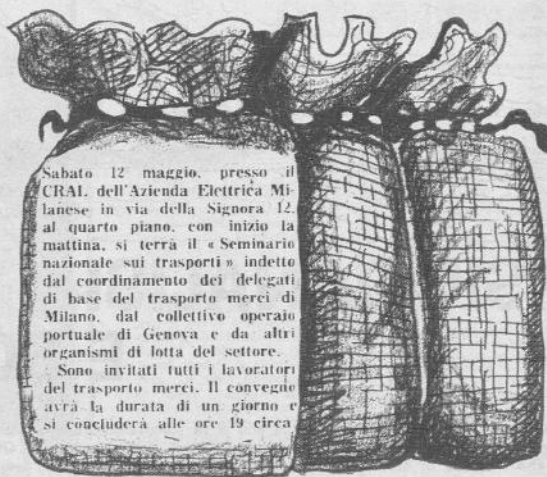 Sabato 12 maggio, presso il
CRAL dell'Azienda Elettrica Mi-
lanese in via della Signora 12,
al quarto piano, con inizio la
mattina, si terrà il « Seminario
nazionale sui trasporti » indetto
dal coordinamento dei delegati
di base del trasporto merci di
Milano, dal collettivo operaio
portuale di Genova e da altri
organismi di lotta del settore.
Sono invitati tutti i lavoratori
del trasporto merci. Il convegno
avrà la durata di un giorno e
si concluderà alle ore 19 circa